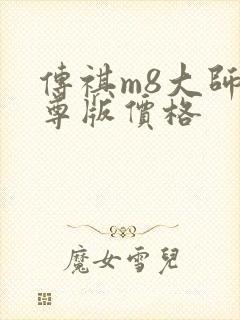 傳祺m8大師
尊版價格
魔女雪兒